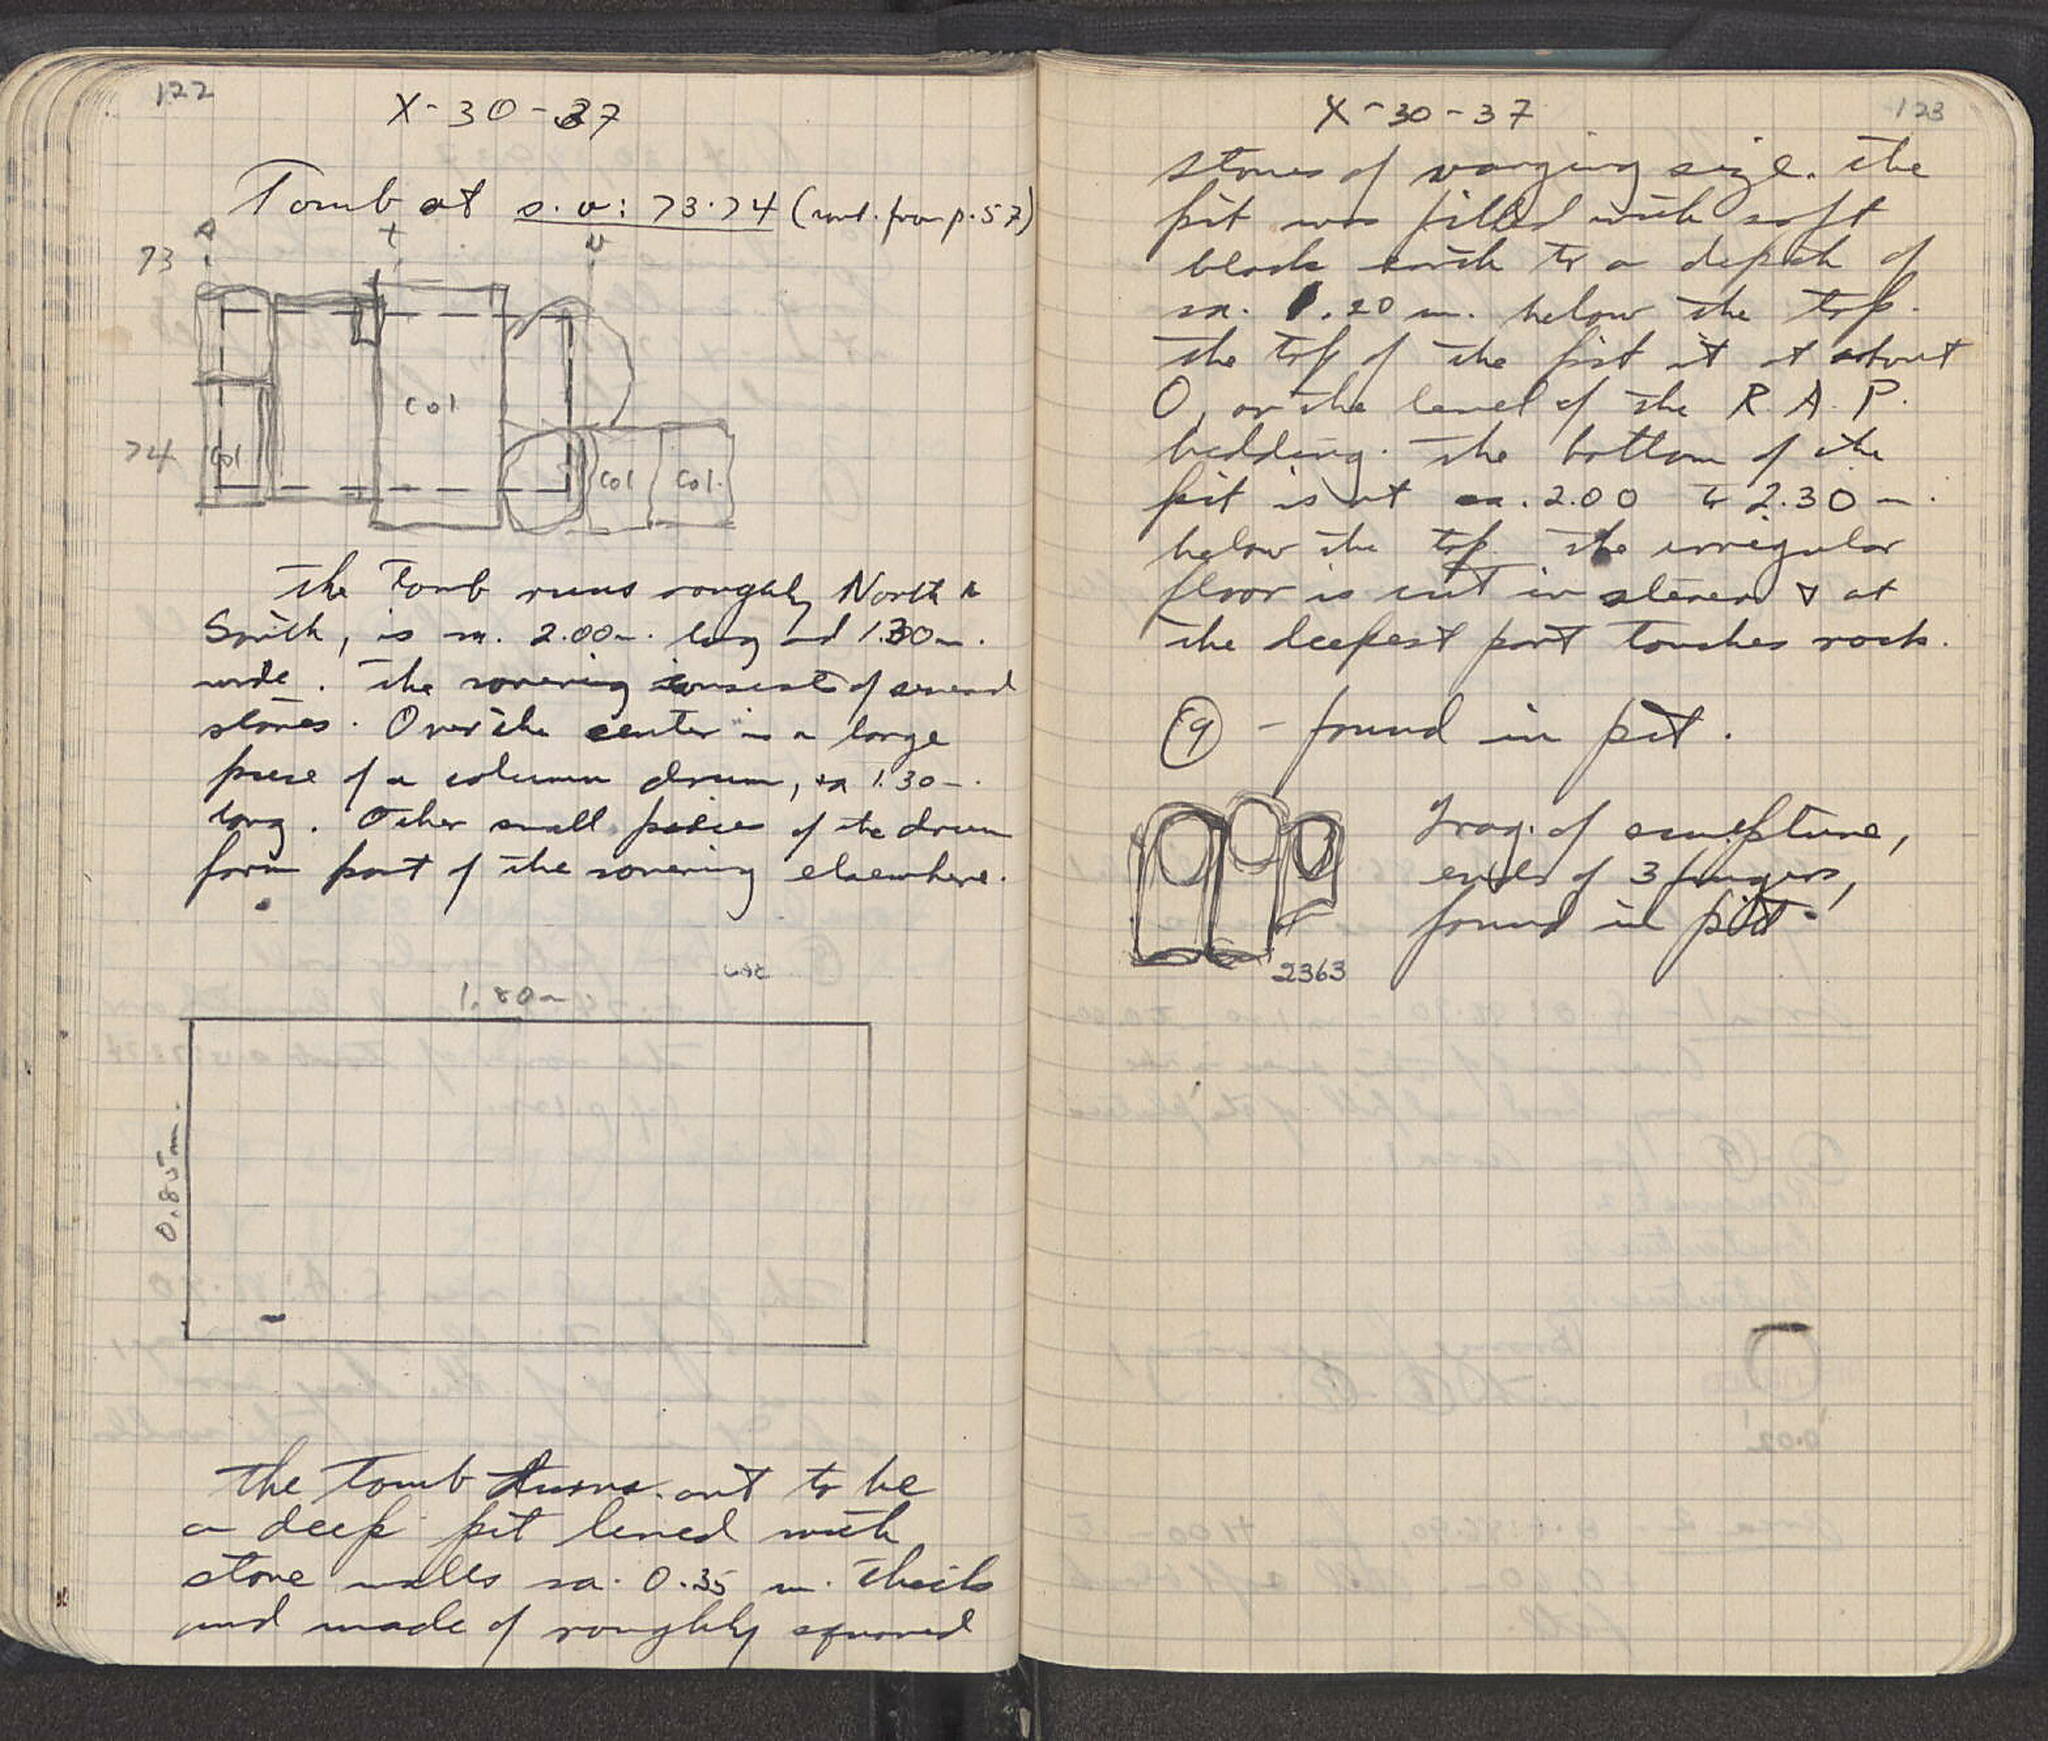 122
X-30-37
Tomb at s.v: 73.74 (cont. from p. 57)
s t v
73
Col
74 Col Col Col.
The Tomb runs roughly North &
South, is ca. 2.00m. long and 1.30m.
wide. The covering consist of several
stones. Over the center is a large
piece of a column drum, ca 1.30m.
long. Other small pieces of the drum
form part of the covering elsewhere.
1.80m.
0.85m.
The tomb turns out to be
a deep pit lined with
stone walls ca. 0.35 m. thick
and made of roughly squared
123
X-30-37
stones of varging size. The
pit was filled with soft
black earth to a depth of
ca. 1.20 m. below the top.
The top of the pit it at about
0, or the level of the R.A.P.
bedding. The bottom of the
pit is at ca. 2.00 to 2.30m.
below the top. The irregular
floor is cut in stereo & at
the deepest part touches rock.
(9) - found in pit.
Frag. of sculpture,
ends of 3 fingers,
found in pit.
2363